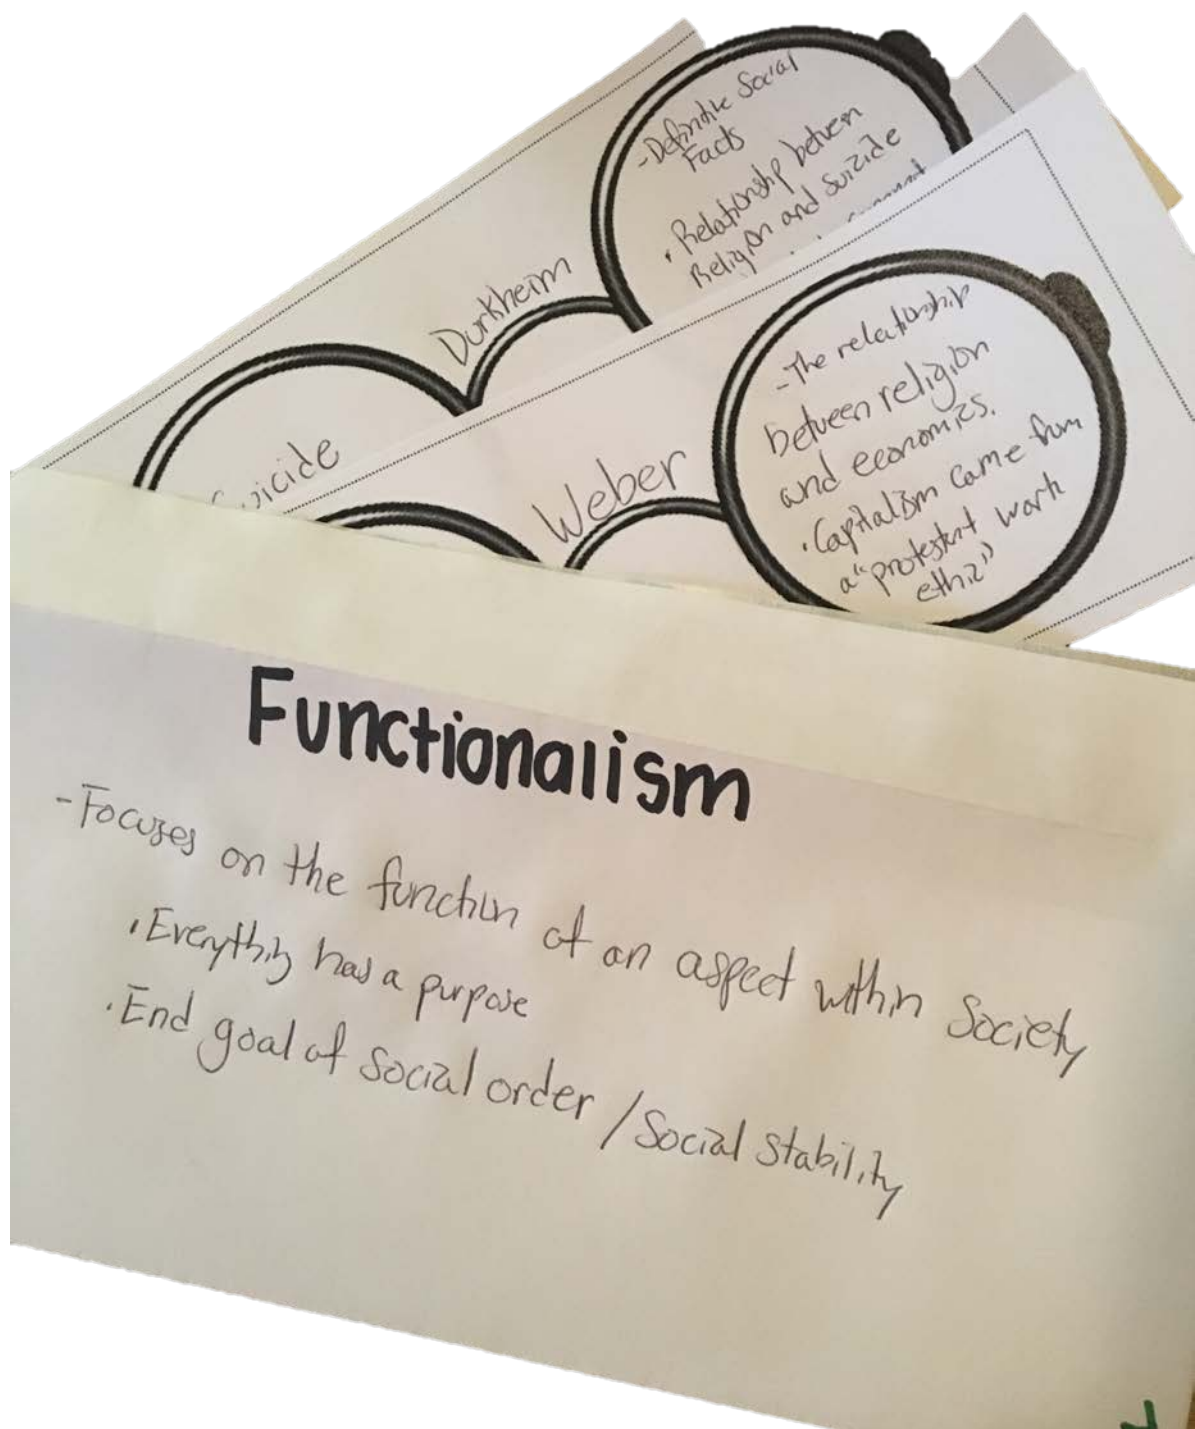 -Definitive Social
Facts
• Relationship between
Religion and suicide
Durkheim
Suicide
-The relationship
between religion
and economics.
• Capitalism came from
a "protestant work
ethic"
Weber
Functionalism
-Focuses on the function of an aspect within Society
• Everything has a purpose
• End goal of social order / Social Stability